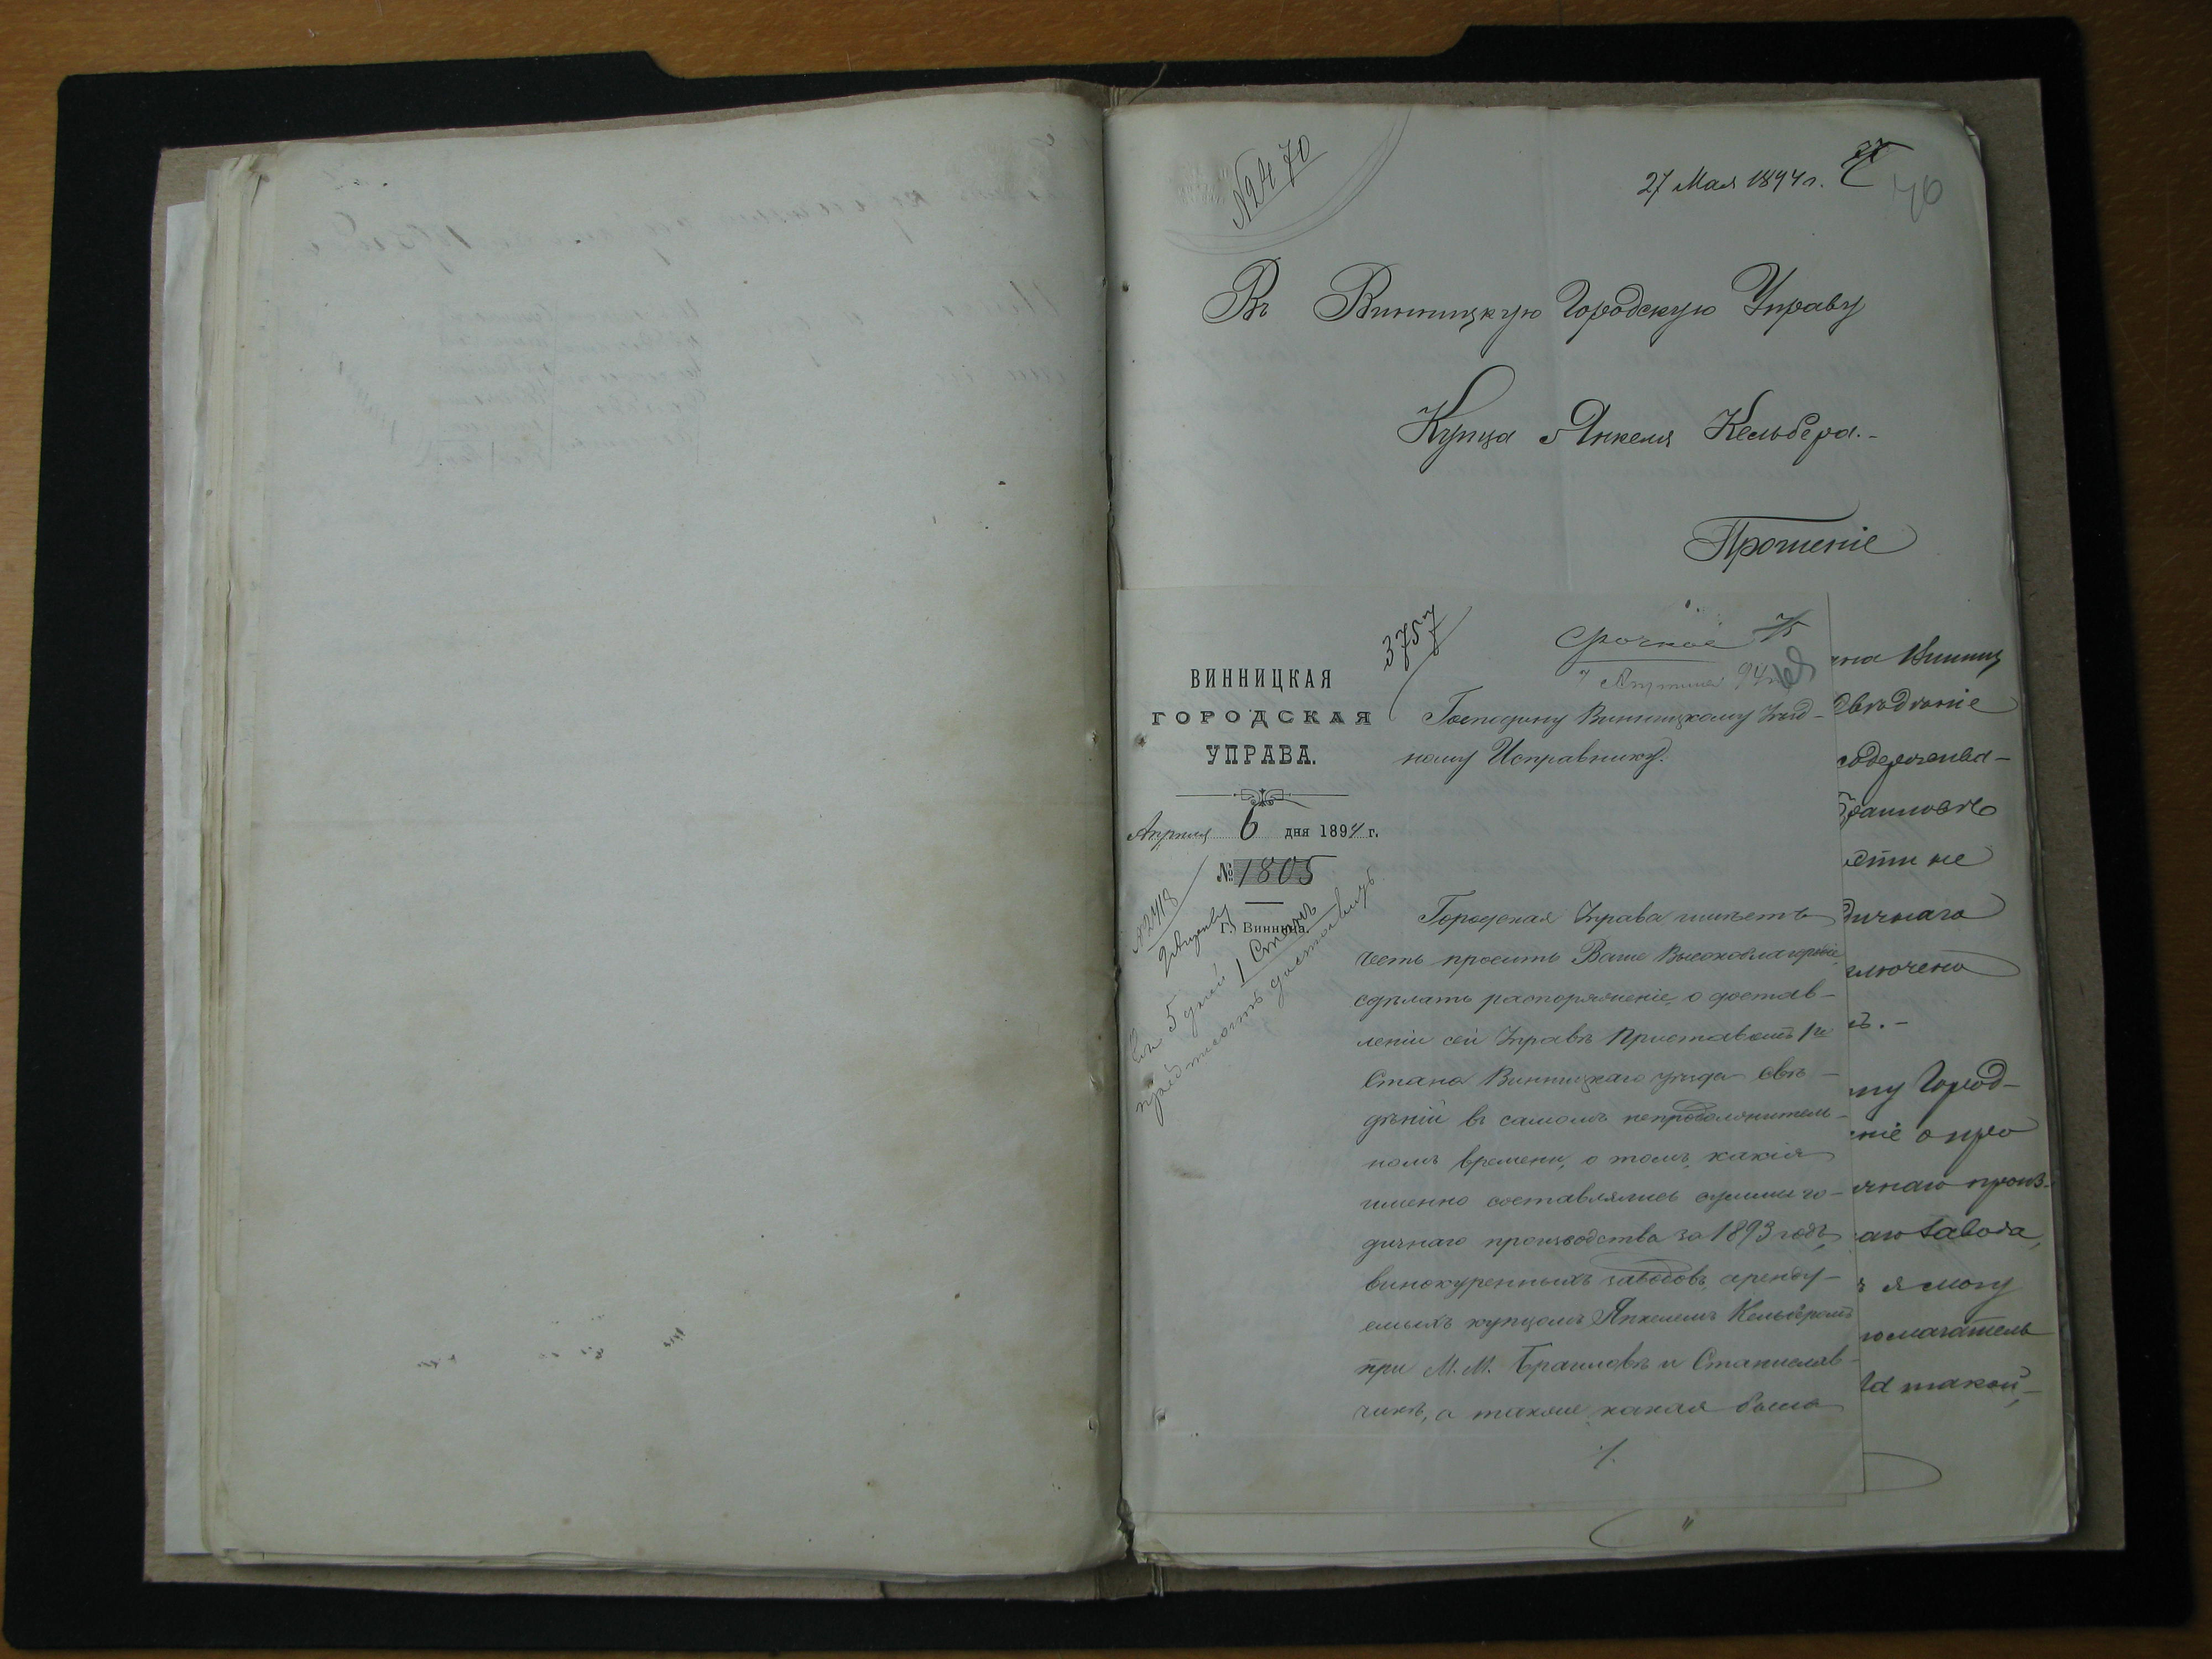 №2470
27 Мая 1894 г.
76
Въ Винницкую Городскую Управу
Купца Янкеля Кельбера.-
Прошеніе
3757
Срочное 75
7 Апрѣля 94
ВИННИЦКАЯ
ГОРОДСКАЯ
УПРАВА.
Апрѣля 6 дня 1894 г.
№ 1805
Г. Винница.
№2418
1 Станъ
5 дней
Господину Винницкому Уѣзд-
ному Исправнику.
Городская Управа имѣетъ
честь просить Ваше Высокоблагородіе
сдѣлать распоряженіе о достав-
леніи сей Управѣ Приставомъ 1го
Стана Винницкаго уѣзда свѣ-
дѣній въ самомъ непродолжитель-
номъ времени, о томъ, какія
именно составлялись суммы го-
дичнаго производства за 1893 годъ,
винокуренныхъ заводовъ, аренду-
емыхъ купцомъ Янкелемъ Кельберомъ
при М.М. Браиловѣ и Станислав-
чикѣ, а также какая была
./.
Винниц
свѣдѣніе
содержива-
Браиловѣ
сти не
дичнаго
ключено
ъ.-
му Город-
ніе о про
чнаго произ-
аго завода,
я могу
омагатель
такой,-